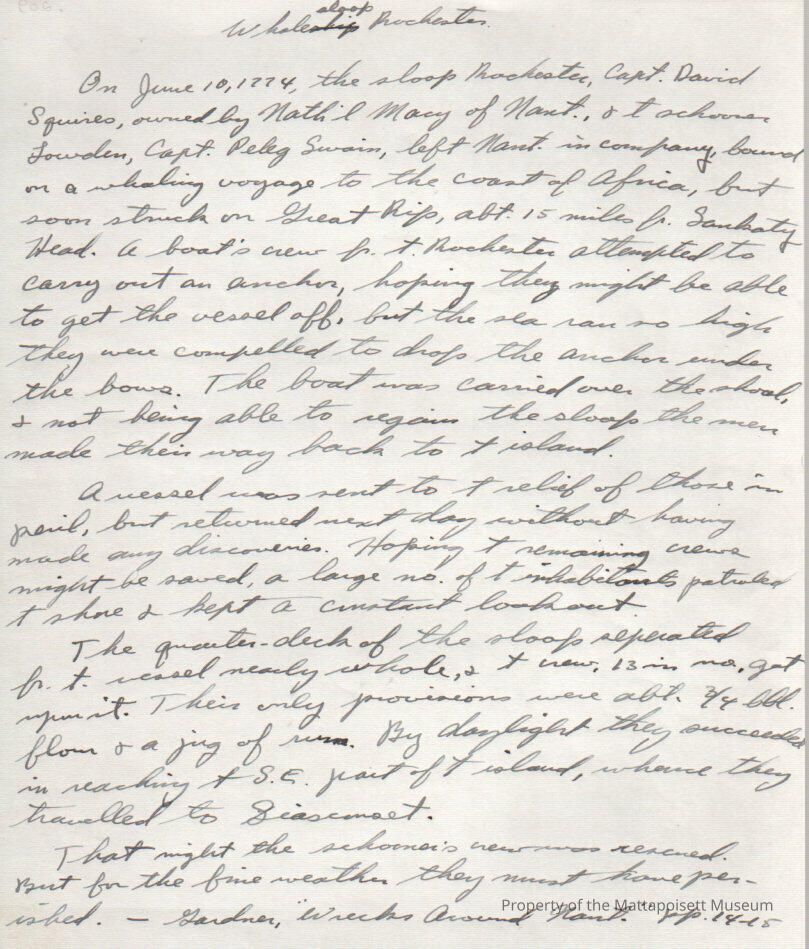 sloop
Whaleship Rochester.
On June 10, 1774, the sloop Rochester, Capt. David
Squires, owned by Nath'l Macy of Nant., & t schooner
Lowden, Capt. Peleg Swain, left Nant. in company, bound
on a whaling voyage to the coast of Africa, but
soon struck on Great Rip, abt. 15 miles fr. Sankaty
Head. A boat's crew fr. t. Rochester attempted to
carry out an anchor, hoping they might be able
to get the vessel off, but the sea ran so high
they were compelled to drop the anchor under
the bows. The boat was carried over the shoal,
& not being able to regain the sloop the men
made their way back to t island.
A vessel was sent to t relief of those in
peril, but returned next day without having
made any discoveries. Hoping t remaining crews
might be saved, a large no. of t inhabitants patroled
t shore & kept a constant lookout.
The quarter-deck of the sloop seperated
fr. t. vessel nearly whole, & t crew, 13 in no., got
upon it. Their only provisions were abt. 3/4 bbl.
flour & a jug of rum. By daylight they succeeded
in reaching t S.E. part of t island, whence they
travelled to Siasconset.
That night the schooner's crew was rescued.
But for the fine weather they must have per-
ished. — Gardner, "Wrecks Around Nant." pp. 14-15
Property of the Mattapoisett Museum